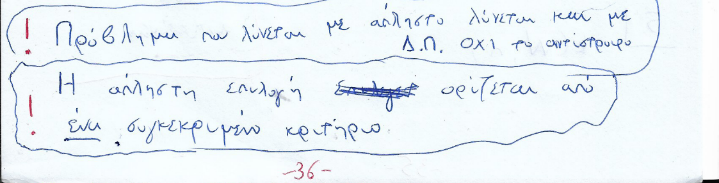 ! Πρόβλημα που λύνεται με άπληστο λύνεται και με
Δ.Π. όχι το αντίστροφο
! Η άπληστη επιλογή ορίζεται από
ένα συγκεκριμένο κριτήριο.
-36-